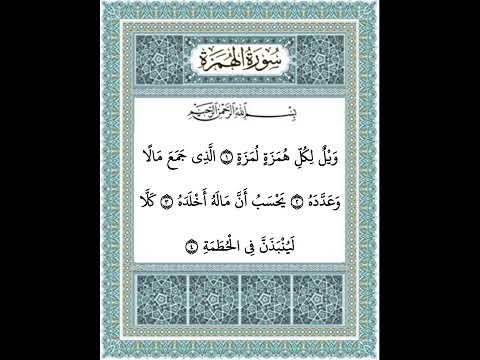 سُورَةُ الهُمَزَةِ
بِسْمِ اللَّهِ الرَّحْمَٰنِ الرَّحِيمِ
وَيْلٌ لِكُلِّ هُمَزَةٍ لُمَزَةٍ ۝١ الَّذِى جَمَعَ مَالًا
وَعَدَّدَهُ ۝٢ يَحْسَبُ أَنَّ مَالَهُ أَخْلَدَهُ ۝٣ كَلَّا
لَيُنْبَذَنَّ فِى الْحُطَمَةِ ۝٤